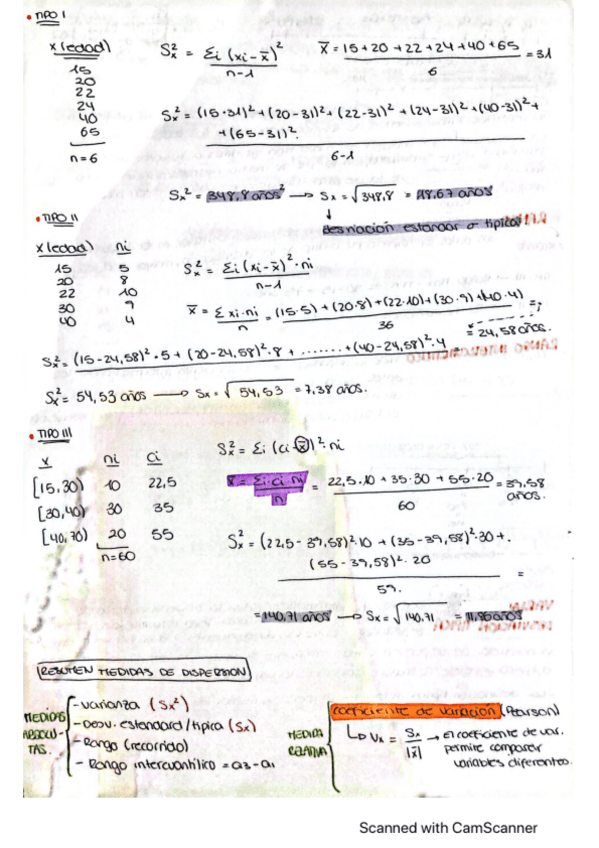 • TIPO I
x (edad)
15
20
22
24
40
65
n=6
Sx² = Σi (xi - x̄)² / n-1
x̄ = 15+20+22+24+40+65 / 6 = 31
Sx² = (15-31)² + (20-31)² + (22-31)² + (24-31)² + (40-31)² +
+ (65-31)². / 6-1
Sx² = 348,8 años² → Sx = √348,8 = 18,67 años
↓
desviación estandar o típica
• TIPO II
x (edad) ni
15 5
20 8
22 10
30 9
40 4
Sx² = Σi (xi - x̄)² · ni / n-1
x̄ = Σ xi·ni / n = (15·5) + (20·8) + (22·10) + (30·9) + (40·4) / 36 =
= 24,58 años.
Sx² = (15-24,58)² · 5 + (20-24,58)² · 8 + ....... + (40-24,58)² · 4
Sx² = 54,53 años → Sx = √54,53 = 7,38 años.
• TIPO III
x ni ci
[15,30) 10 22,5
[30,40) 30 35
[40,70) 20 55
n=60
Sx² = Σi (ci - x̄)² · ni
x̄ = Σi·ci·ni / n = 22,5·10 + 35·30 + 55·20 / 60 = 39,58 años.
Sx² = (22,5 - 39,58)²·10 + (35-39,58)²·30 +.
(55-39,58)² · 20 / 59. =
= 140,71 años → Sx = √140,71 = 11,86 años
RESUMEN MEDIDAS DE DISPERSION
MEDIDAS ABSOLU-TAS.
- varianza (Sx²)
- Desv. estandard/tipica (Sx)
- Rango (recorrido)
- Rango intercuantílico = Q3-Q1
MEDIDA RELATIVA
coeficiente de variación (Pearson)
↳ Vx = Sx / |x̄| → el coeficiente de var.
permite comparar
variables diferentes.
Scanned with CamScanner